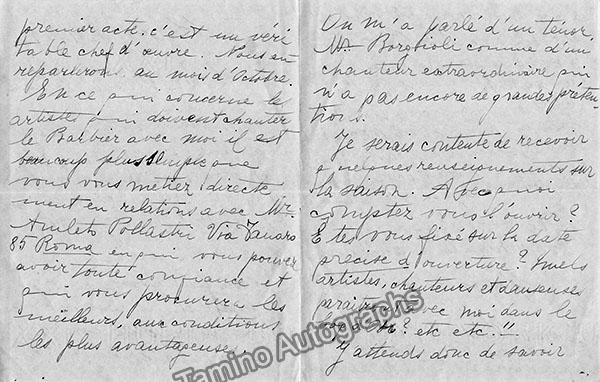 premier acte, c'est un véri
table chef d'œuvre. Nous en
reparlerons au mois d'Octobre.
En ce qui concerne les
artistes qui doivent chanter
le Barbier avec moi il est
beaucoup plus simple que
vous vous mettiez directe
ment en relations avec Mr.
Amleto Pollastri Via Tanaro
85 Roma en qui vous pouvez
avoir toute confiance et
qui vous procurera les
meilleurs, aux conditions
les plus avantageuses.
On m'a parlé d'un ténor,
Mr. Borgioli comme d'un
chanteur extraordinaire qui
n'a pas encore de grandes préten
tions.
Je serais contente de recevoir
quelques renseignements sur
la saison. Avec quoi
comptez vous l'ouvrir?
Etes vous fixé sur la date
précise d'ouverture? Quels
artistes, chanteurs et danseuses
avec moi dans le
? etc etc!!
J'attends donc de savoir
Tamino Autographs